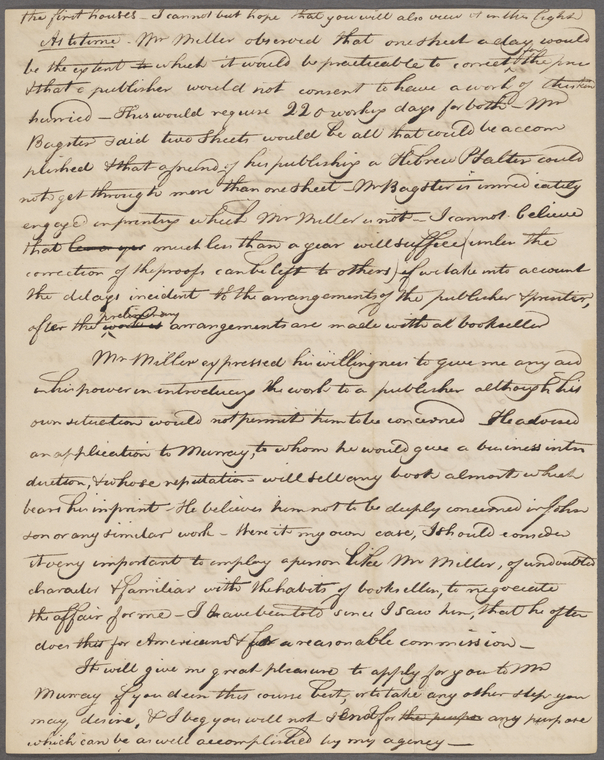 the first houses - I cannot but hope that you will also view it in this light
As to time. Mr Miller observed that one sheet a day, would
be the extent to which it would be practicable to correct the press
& that a publisher would not consent to have a work of this kind
hurried - This would require 220 working days for both - Mr
Bagster said two sheets would be all that could be accom
plished & that a friend of his publishing a Hebrew Psalter could
not get through more than one sheet - Mr Bagster is immediately
engaged in printing which Mr Miller is not - I cannot believe
that much less than a year will suffice (unless the
correction of the proofs can be left to others) if we take into account
the delays incident to the arrangements of the publisher & printer,
after the preliminary arrangements are made with a bookseller
Mr Miller expressed his willingness to give me any aid
in his power in introducing the work to a publisher although his
own situation would not permit him to be concerned He advised
an application to Murray, to whom he would give a business intro
duction, & whose reputation will sell any book almost which
bears his imprint. He believes him not to be deeply concerned in John
son or any similar work - Were it my own case, I should consider
it very important to employ a person like Mr Miller, of undoubted
character & familiar with the habits of booksellers, to negociate
the affair for me - I have been told since I saw him, that he often
does this for Americans & for a reasonable commission -
It will give me great pleasure to apply for you to Mr
Murray if you deem this course best, or to take any other step you
may desire, & I beg you will not send for any purpose
which can be as well accomplished by my agency -